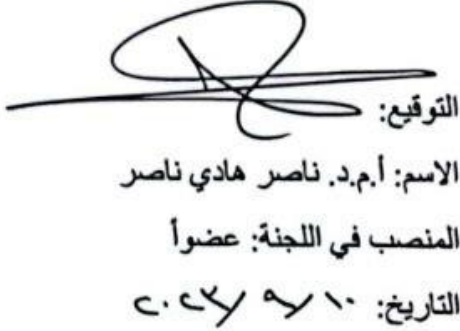 التوقيع:
الاسم: أ.م.د. ناصر هادي ناصر
المنصب في اللجنة: عضواً
التاريخ: ١٠/ ٩/ ٢٠٢٣